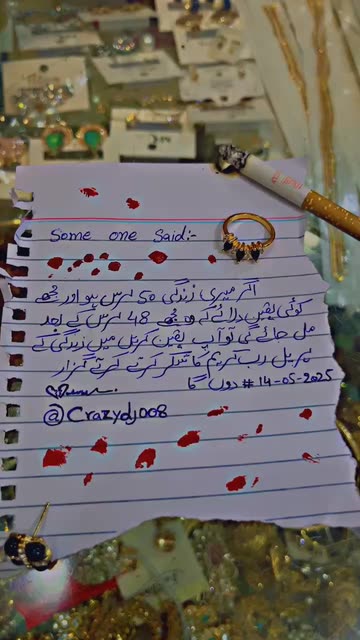 Some one Said:-
اگر میری زندگی 50 برس ہو اور مجھے
کوئی یقین دلائے کے وہ مجھے 48 برس کے بعد
مل جائے گی تو آپ یقین کریں میں زندگی کے
رب کریم کا شکر کرتے کرتے گزار
دوں گا #14-05-2025
@Crazydj008